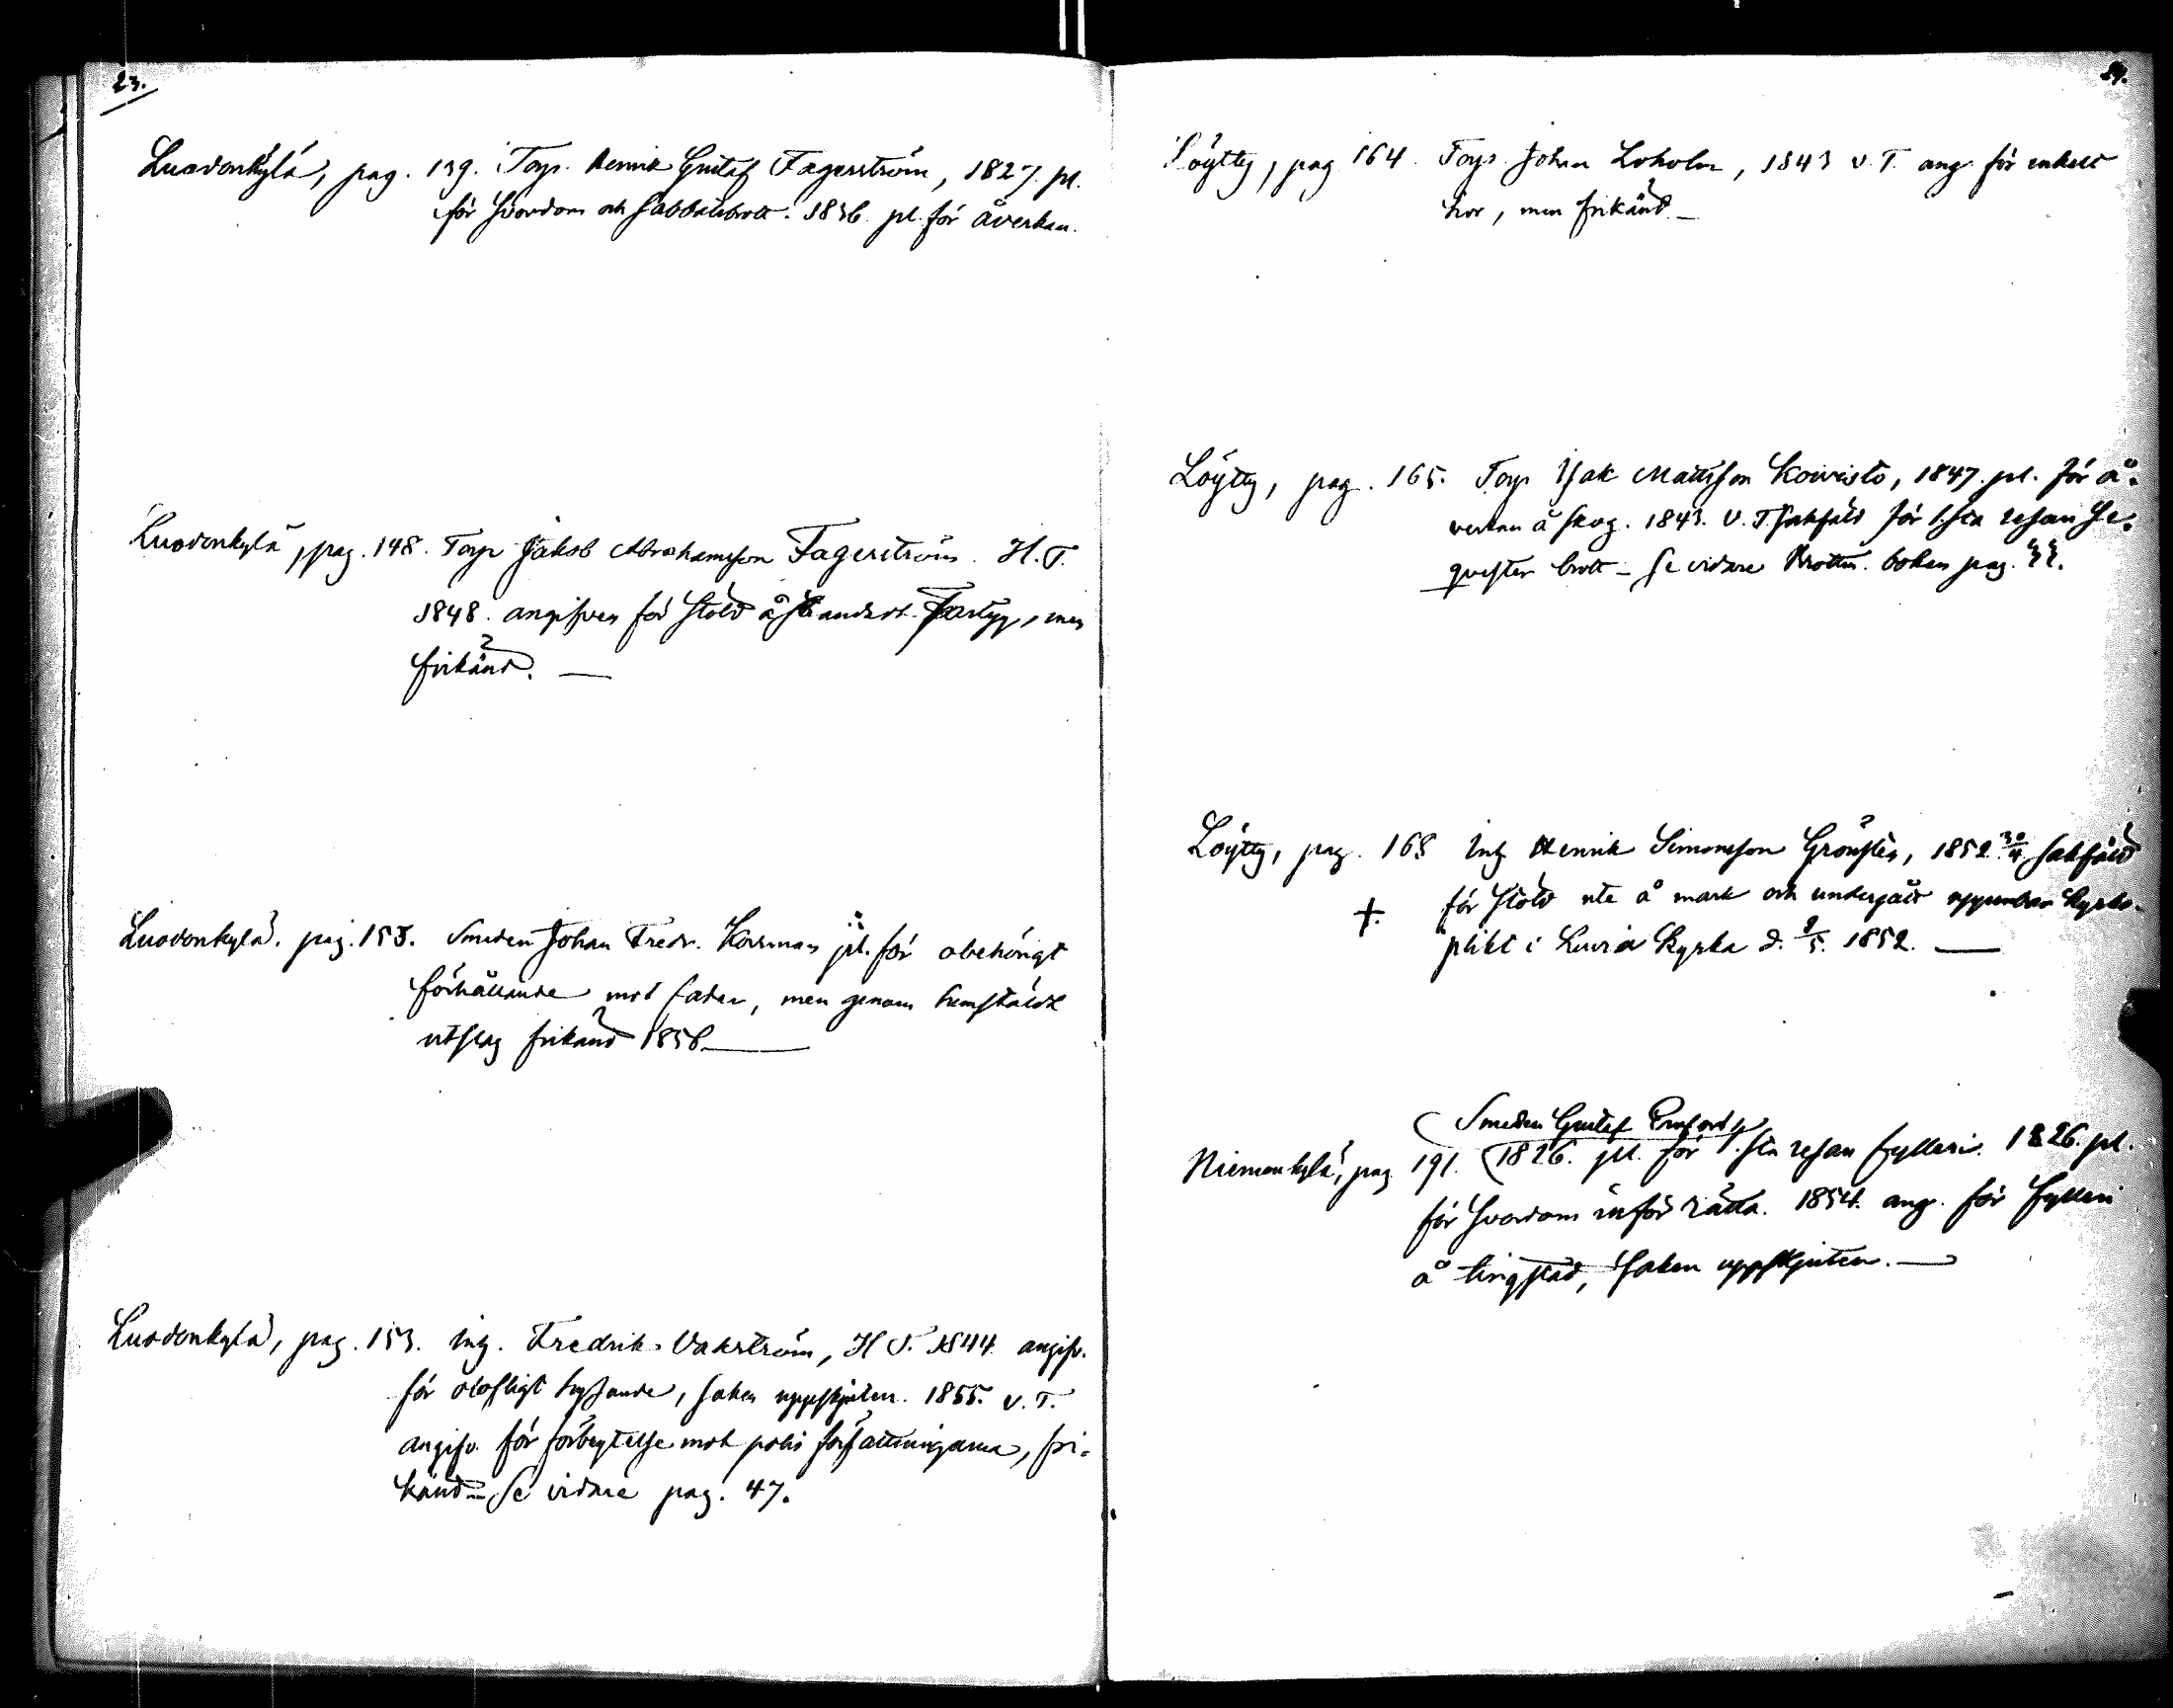 23.
Luodonkylä, pag. 139. Torp. Henrik Gustaf Fagerström, 1827. pl.
för svordom och sabbatsbrott. 1836. pl. för åverkan.
Luodonkylä, pag. 148. Torp Jakob Abrahamsson Fagerström. H. T.
1848. angifven för stöld å strandadt Fartyg, men
frikänd. —
Luodonkylä. pag. 153. Smeden Johan Fredr. Korsman pl. för obehörigt
förhållande mot fader, men genom hemstäldt
utslag frikänd 1856 —
Luodonkylä, pag. 153. Inh. Fredrik Vakström, H T. 1844 angifv.
för olofligt hysande, saken uppskjuten. 1855. v. T.
angifv. för förbrytelse mot polis författningarna, fri-
känd — Se vidare pag. 47.
24.
Löytty, pag 164. Torp. Johan Loholm, 1843 v. T. ang för enkelt
hor, men frikänd. —
Löytty, pag. 165. Torp Isak Mattsson Koivisto, 1847. pl. för å-
verkan å skog. 1843. V. T. sakfäld för 1:sta resan Se-
quester brott — Se vidare Brottm. boken pag.
Löytty, pag. 168 Inh Henrik Simonsson Grönsten, 1852 30/4 sakfäld
+ för stöld ute å mark och undergått uppenbar Kyrko-
plikt i Luvia Kyrka d. 9/5. 1852. —
Smeden Gustaf
Niemenkylä, pag 191. (1826. pl. för 1:sta resan fylleri. 1826. pl.
för svordom inför rätta. 1854. ang. för fylleri
å tingstad, saken uppskjuten. —